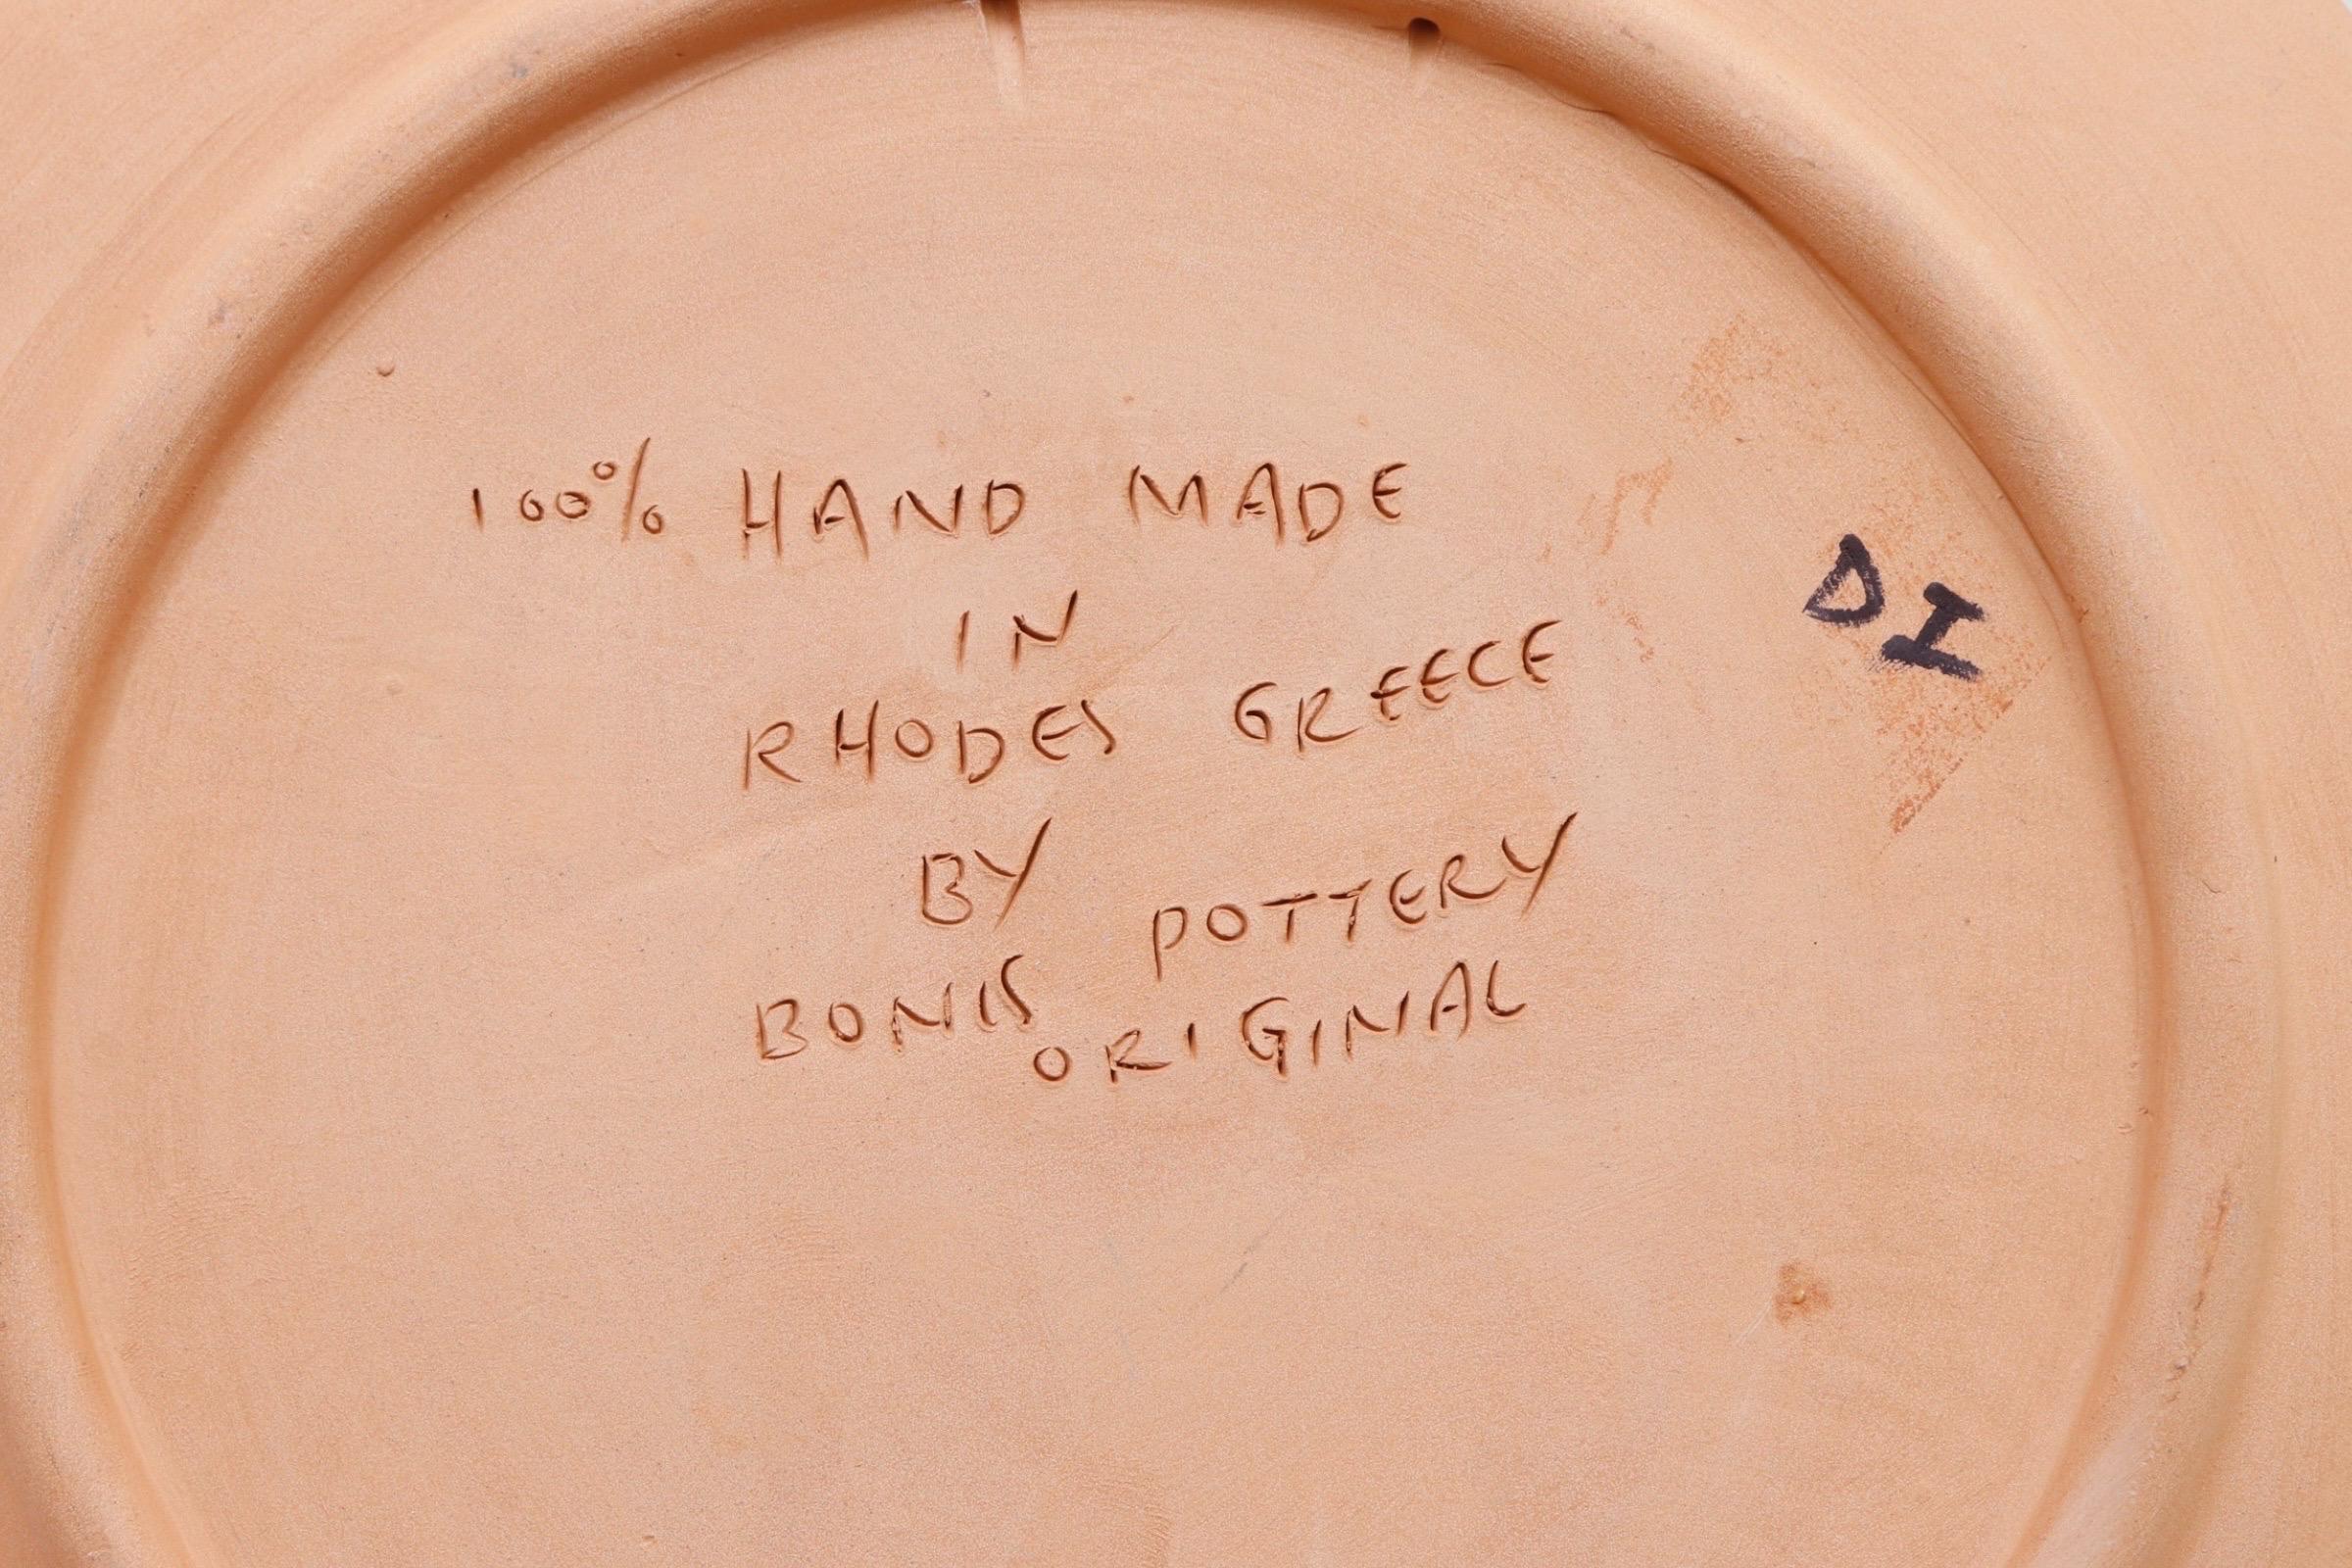 100% HAND MADE
IN
RHODES GREECE
BY
BONIS POTTERY
ORIGINAL
DI